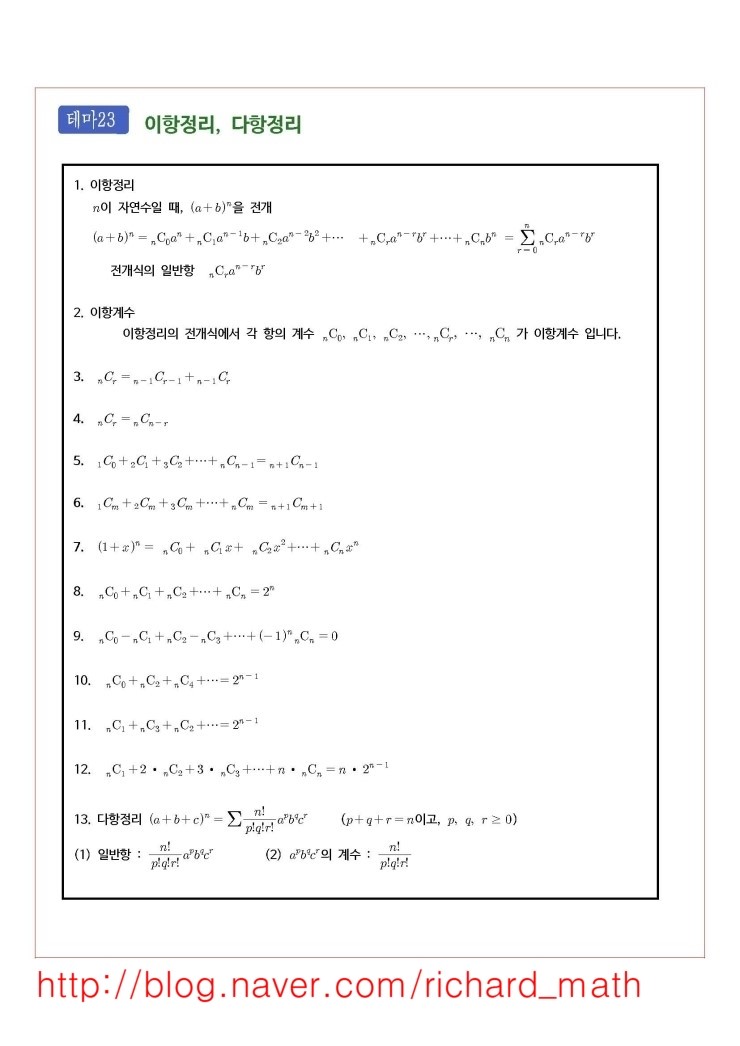 테마23 이항정리, 다항정리
1. 이항정리
n이 자연수일 때, (a+b)ⁿ을 전개
(a+b)ⁿ = ₙC₀aⁿ + ₙC₁aⁿ⁻¹b + ₙC₂aⁿ⁻²b² + ⋯ + ₙCᵣaⁿ⁻ʳbʳ + ⋯ + ₙCₙbⁿ = ∑_{r=0}^{n} ₙCᵣaⁿ⁻ʳbʳ
전개식의 일반항 ₙCᵣaⁿ⁻ʳbʳ
2. 이항계수
이항정리의 전개식에서 각 항의 계수 ₙC₀, ₙC₁, ₙC₂, ⋯, ₙCᵣ, ⋯, ₙCₙ 가 이항계수 입니다.
3. ₙCᵣ = ₙ₋₁Cᵣ₋₁ + ₙ₋₁Cᵣ
4. ₙCᵣ = ₙCₙ₋ᵣ
5. ₁C₀ + ₂C₁ + ₃C₂ + ⋯ + ₙCₙ₋₁ = ₙ₊₁Cₙ₋₁
6. ₁Cₘ + ₂Cₘ + ₃Cₘ + ⋯ + ₙCₘ = ₙ₊₁Cₘ₊₁
7. (1+x)ⁿ = ₙC₀ + ₙC₁x + ₙC₂x² + ⋯ + ₙCₙxⁿ
8. ₙC₀ + ₙC₁ + ₙC₂ + ⋯ + ₙCₙ = 2ⁿ
9. ₙC₀ − ₙC₁ + ₙC₂ − ₙC₃ + ⋯ + (−1)ⁿ ₙCₙ = 0
10. ₙC₀ + ₙC₂ + ₙC₄ + ⋯ = 2ⁿ⁻¹
11. ₙC₁ + ₙC₃ + ₙC₂ + ⋯ = 2ⁿ⁻¹
12. ₙC₁ + 2 • ₙC₂ + 3 • ₙC₃ + ⋯ + n • ₙCₙ = n • 2ⁿ⁻¹
13. 다항정리 (a+b+c)ⁿ = ∑ n!/(p!q!r!) a^p b^q c^r (p+q+r=n이고, p, q, r ≥ 0)
(1) 일반항 : n!/(p!q!r!) a^p b^q c^r (2) a^p b^q c^r의 계수 : n!/(p!q!r!)
http://blog.naver.com/richard_math